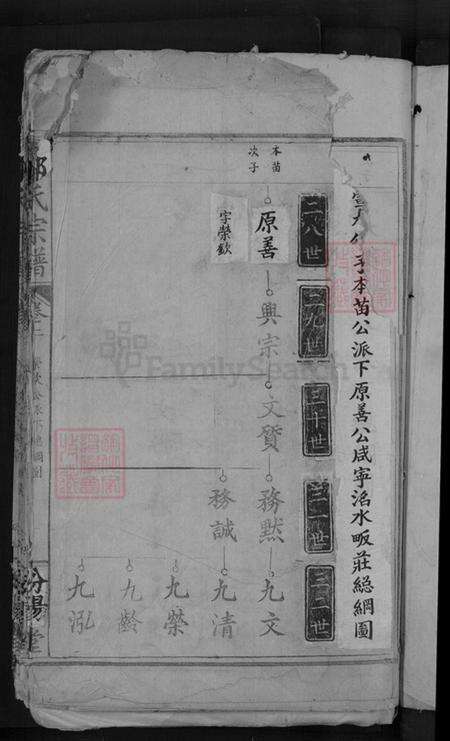 子本苗公派下原善公咸寧洺水畈莊総綱圖
二八世
二九世
三十世
三一世
三二世
本苗
次子
原善
字榮欽
興宗
文質
務默
務誠
九文
九清
九榮
九齡
九泓
氏宗譜
公派下總綱圖
汾陽堂
FamilySearch